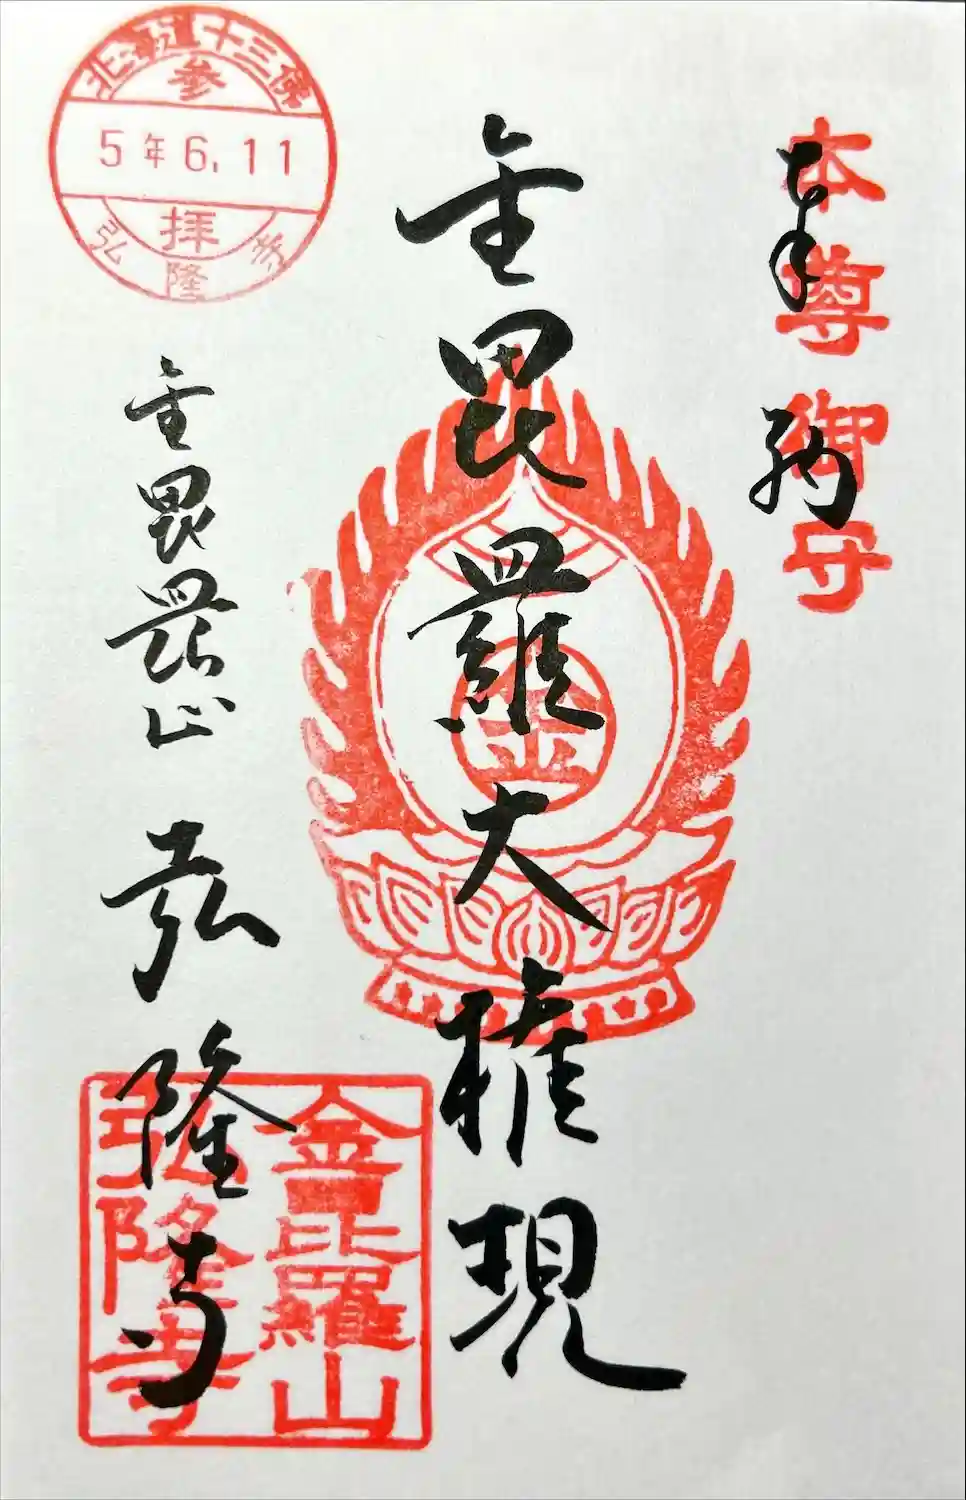 奉納
本尊御守
金毘羅大権現
金
金毘羅山 弘隆寺
北海道十三佛
参
5年6.11
拝
弘隆寺
金毘羅山
弘隆寺